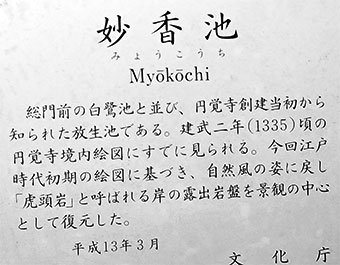 妙香池
みょうこうち
Myōkōchi
総門前の白鷺池と並び、円覚寺創建当初から
知られた放生池である。建武二年(1335)頃の
円覚寺境内絵図にすでに見られる。今回江戸
時代初期の絵図に基づき、自然風の姿に戻し
「虎頭岩」と呼ばれる岸の露出岩盤を景観の中心
として復元した。
平成13年3月
文化庁